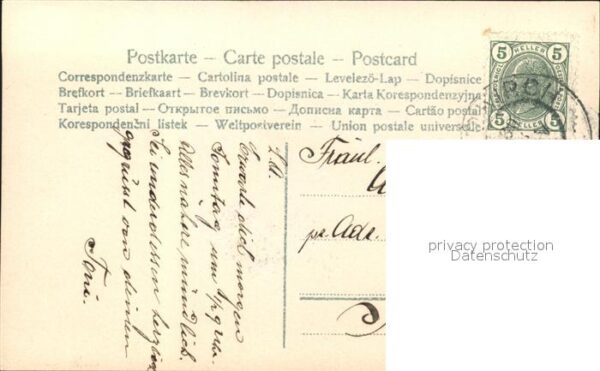 Postkarte – Carte postale – Postcard
Correspondenzkarte – Cartolina postale – Levelező-Lap – Dopisnice
Brefkort – Briefkaart – Brevkort – Dopisnica – Karta Korespondenzyjna
Tarjeta postal – Открытое письмо – Дописна карта – Cartão postal
Korespondenční listek – Weltpostverein – Union postale universelle
5 HELLER 5
5 HELLER 5
Erwarte dich morgen
Sonntag um
Alles nähere mündlich.
Sei unterdessen herzlich
gegrüsst von deinem
Toni.
Fräul.
pr. Adr.
privacy protection
Datenschutz